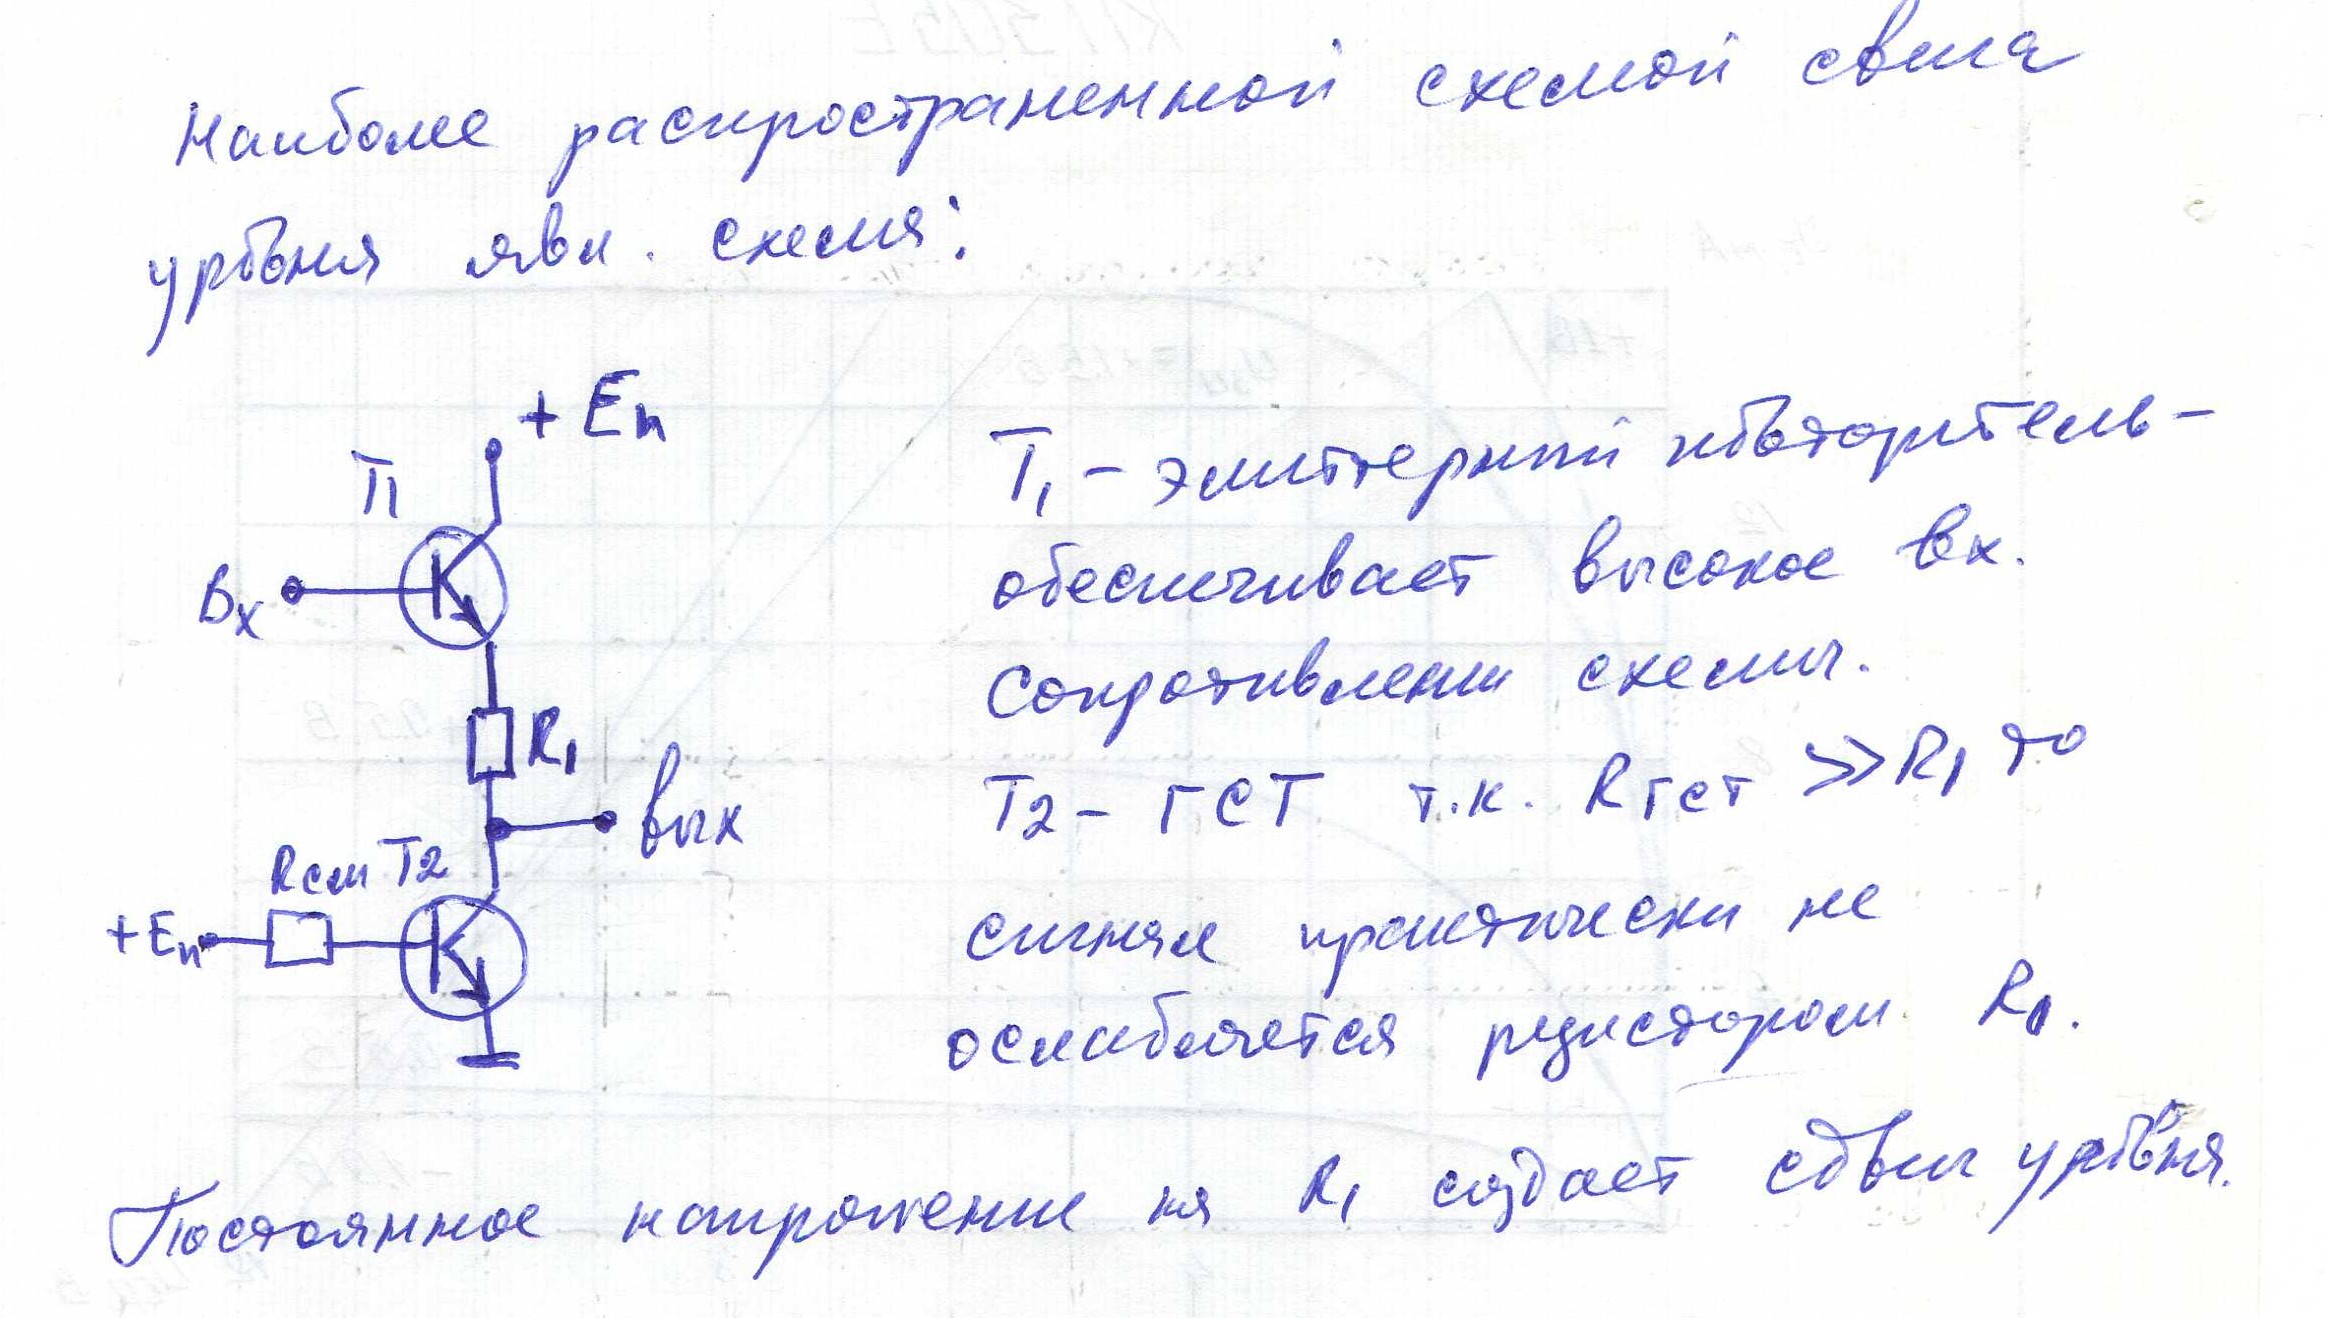 Наиболее распространенной схемой свига
уровня явл. схемя:
+ Eп
T1
Вх
R1
вых
Rсм T2
+Eп
T1 - эмиттерный повторитель-
обеспечивает высокое вх.
сопротивлении схемы.
T2 - ГСТ т.к. RГСТ >> R1 то
сигнял практически не
ослабляется резистором R1.
Постоянное напряжение ня R1 создает сдвиг уровня.